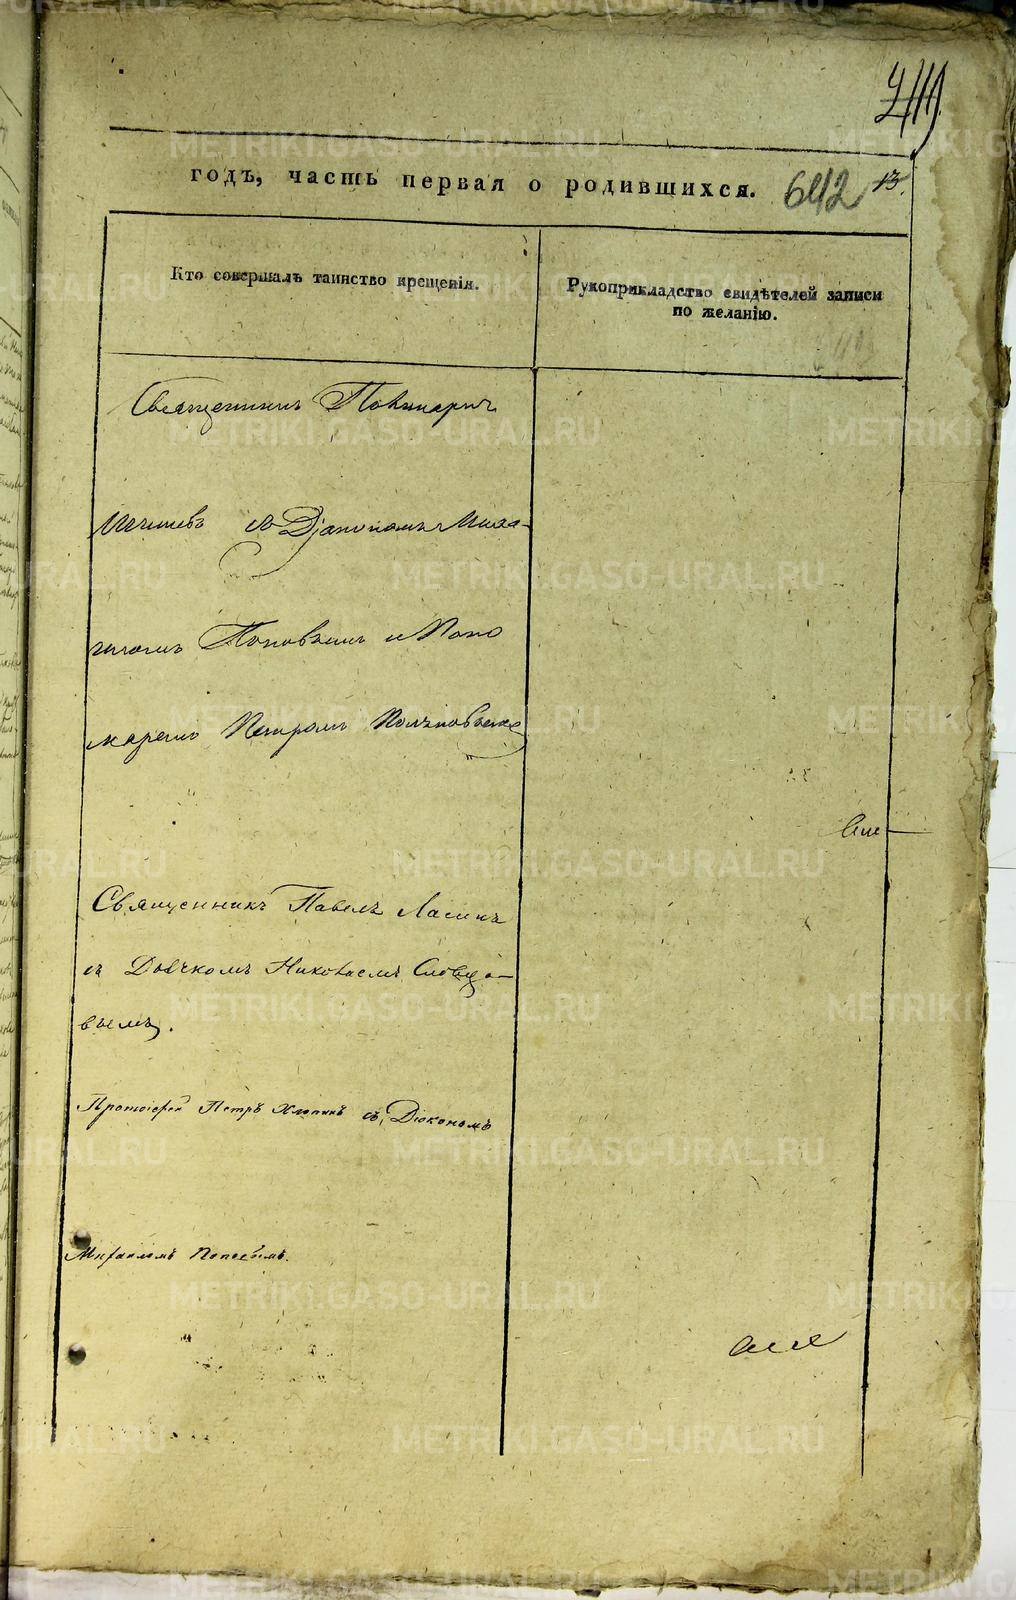 годъ, часть первая о родившихся. 642 13.
Кто совершалъ таинство крещенія.
Рукоприкладство свидѣтелей записи
по желанію.
Священникъ
съ Дїакономъ Миха-
иломъ Поповымъ и Поно
маремъ Петромъ
Священникъ Павелъ Ласинъ
съ Дьячкомъ Николаемъ Словцо-
вымъ.
Протоіерей Петръ Хлопинъ съ Діакономъ
Михаиломъ Поповымъ.
METRIKI.GASO-URAL.RU